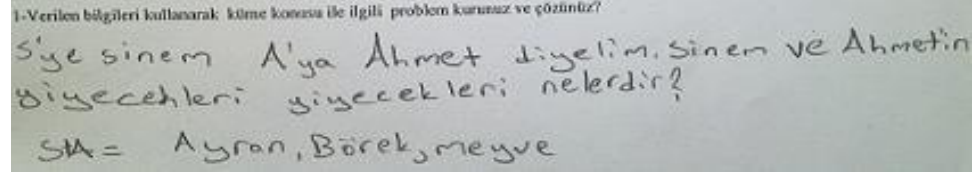 1-Verilen bilgileri kullanarak küme konusu ile ilgili problem kurunuz ve çözünüz?
S'ye sinem A'ya Ahmet diyelim. Sinem ve Ahmetin
yiyecehleri yiyecekleri nelerdir?
S\A = Ayran, Börek, meyve